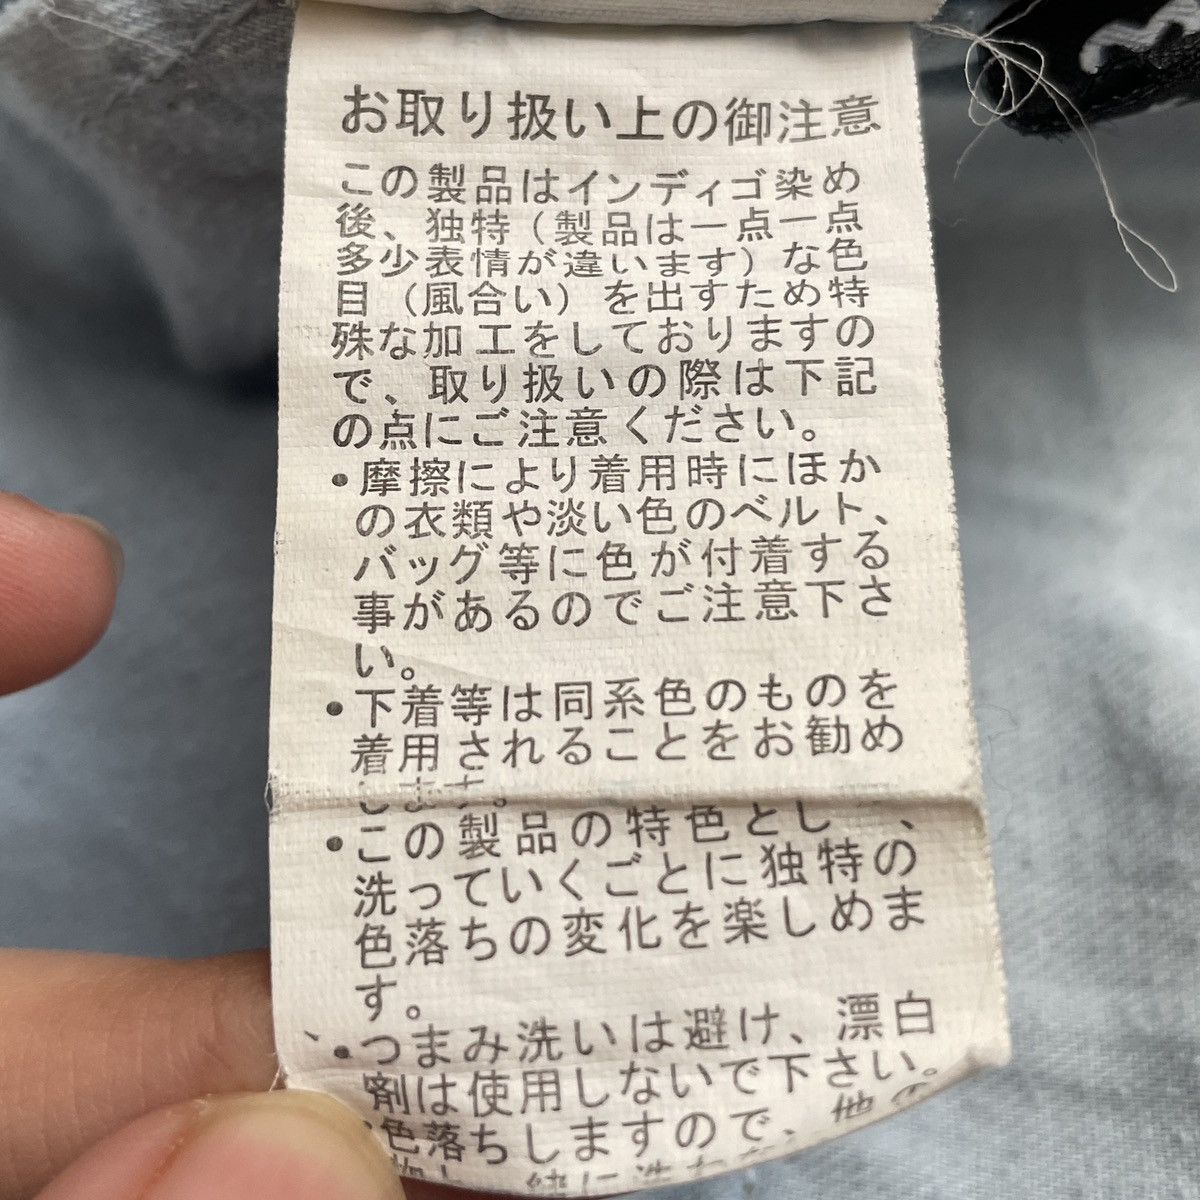 お取り扱い上の御注意
この製品はインディゴ染め
後、独特（製品は一点一点
多少表情が違います）な色
目（風合い）を出すため特
殊な加工をしておりますの
で、取り扱いの際は下記
の点にご注意ください。
•摩擦により着用時にほか
の衣類や淡い色のベルト、
バッグ等に色が付着する
事があるのでご注意下さ
い。
•下着等は同系色のものを
着用されることをお勧め
します。
•この製品の特色とし、
洗っていくごとに独特の
色落ちの変化を楽しめま
す。
•つまみ洗いは避け、漂白
剤は使用しないで下さい。
色落ちしますので、他の